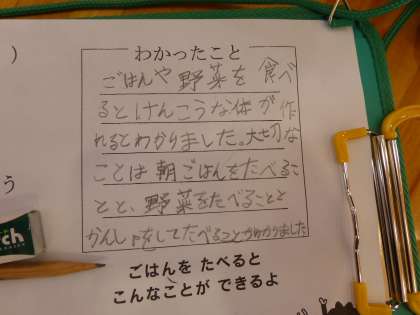 )
わかったこと
ごはんや野菜を食べ
るとけんこうな体が作
れるとわかりました。大切な
ことは朝ごはんをたべるこ
とと、野菜をたべることと
かんしゃをしてたべることがわかりました
う
ch
ごはんを たべると
こんなことが できるよ